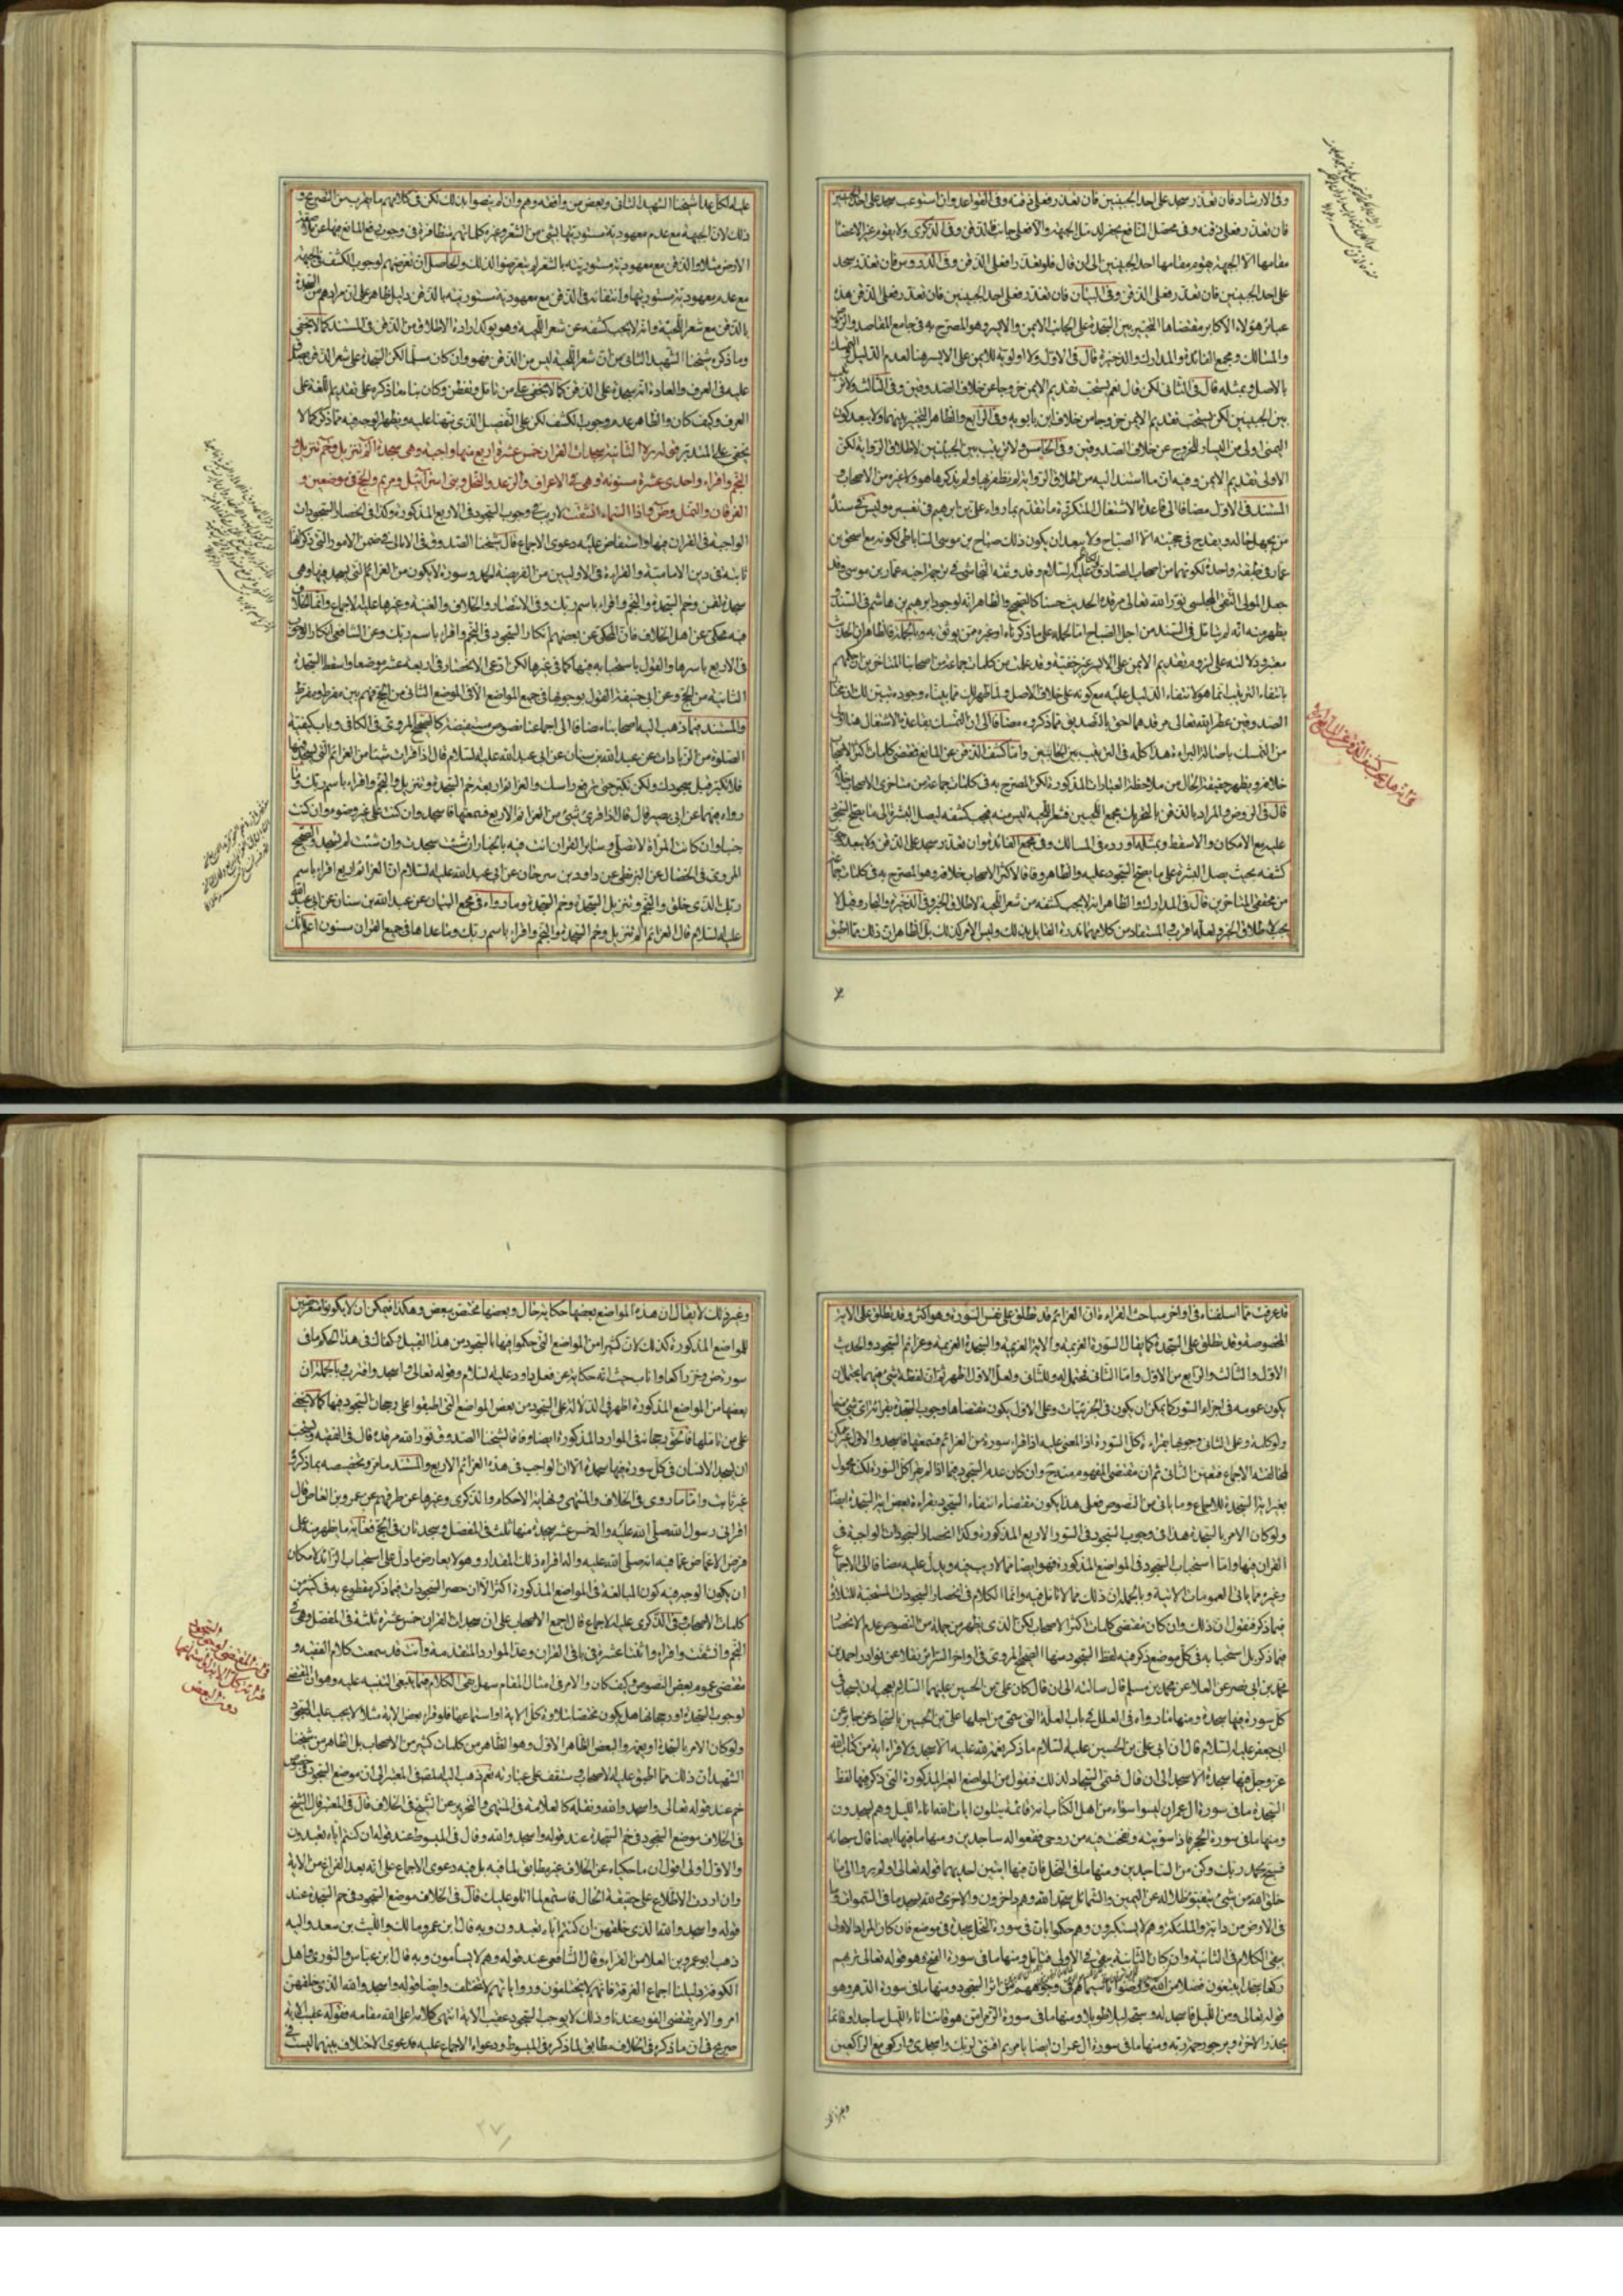 وفى الارشاد فان تعذر سجد على احد الجبينين فان تعذر فعلى ذقنه وفى القواعد وان استوعب سجد على احد الجبينين
فان تعذر فعلى ذقنه وفى
مقامها الا الجبهة احد الجبينين الى ان قال فلو تعذرا فعلى الذقن وفى الدروس فان تعذر سجد
على احد الجبينين فان تعذر فعلى الذقن وفى البيان فان تعذر فعلى احد الجبينين فان تعذر فعلى الذقن هذه
عبائر هؤلاء الاكابر مقتضاها التخيير بين السجدة على الجانب الايمن والايسر وهو المصرح به فى جامع المقاصد والروض
والمسالك ومجمع الفائدة والمدارك والذخيرة قال فى الاول ولا اولوية للايمن على الايسر هنا لعدم الدليل
بالاصل وبمثله قال فى الثانى لكن قال نعم يستحب تقديم الايمن خروجا عن خلاف الصدوقين وفى الثالث ولا ترتيب
بين الجبينين لكن يستحب تقديم الايمن خروجا من خلاف ابن بابويه وفى الرابع والظاهر التخيير بينهما ولا يبعد كون
اليمنى اولى من اليسار للخروج عن خلاف الصدوقين وفى الخامس ولا ترتيب بين الجبينين لاطلاق الرواية لكن
الاولى تقديم الايمن وفيه ان ما استند اليه من اطلاق الرواية لم نظفر بها ولم يذكرها هو ولا غيره من الاصحاب و
المستند فى الاول مضافا الى قاعدة الاشتغال المذكورة ما تقدم بما رواه على بن ابرهيم فى تفسيره وليس فى سنده
من يجهل حاله ويقدح فى حجيته الا الصباح ولا يبعد ان يكون ذلك صباح بن موسى الساباطى لكونه مع اسحق بن
عمار فى طبقة واحدة لكونهما من اصحاب الصادق عليه السلام وقد وثقه النجاشى فى ترجمة اخيه عمار بن موسى وقد
جعل المولى التقى المجلسى نور الله تعالى مرقده الحديث حسنا كالصحيح والظاهر انه لوجود ابرهيم بن هاشم فى السند
يظهر منه انه لم يتأمل فى السند من اجل الصباح
معتبر ودلالته على لزوم تقديم الايمن على الايسر غير خفية وقد علمت من كلمات جماعة من اصحابنا المتاخرين
بانتفاء الترتيب انما هو لانتفاء الدليل عليه مع كونه على خلاف الاصل
الصدوقين عطر الله تعالى مرقدهما احق بالتصديق مما ذكروه مضافا الى ان التمسك بقاعدة الاشتغال هنا اولى
من التمسك باصالة البرائة هذا كله فى الترتيب بين الجانبين واما كشف الذقن عن المانع فمقتضى كلمات اكثر الاصحاب
خلافه ويظهر حقيقة الحال من ملاحظة العبارات المذكورة لكن المصرح به فى كلمات جماعة من متاخرى الاصحاب خلافه
قال فى الروض والمراد بالذقن بالتحريك مجمع اللحيين فشعر اللحية ليس منه فيجب كشفه ليصل البشرة الى ما يصح السجود
عليه مع الامكان والا سقط وبمثله اورده فى المسالك وفى مجمع الفائدة وان تعذر سجد على الذقن ولا يبعد
كشفه بحيث يصل البشرة على ما يصح السجود عليه والظاهر وفاقا لاكثر الاصحاب خلافه وهو المصرح به فى كلمات
من محققى المتاخرين قال فى المدارك والظاهر انه لا يجب كشفه من شعر اللحية لاطلاق الخبر وفى الذخيرة والبحار
يجب لاطلاق الخبر ولعله اقرب المستفاد من كلامهما ندرة القائل بذلك وليس الامر كذلك بل الظاهر ان ذلك مما اطبق
عليه لكل عدا شيخنا الشهيد الثانى وبعض من وافقه وهم وان لم ينصوا بذلك لكن فى كلامهم ما يقرب من التصريح و
ذلك لان الجبهة مع عدم معهودية مستوريتها بشئ من الشعر وغيره كلماتهم متظافرة فى وجوب رفع المانع عنها
الارض مثلا والذقن مع معهودية مستوريته بالشعر لم يتعرضوا لذلك والحاصل ان تعرضهم لوجوب الكشف فى الجبهة
مع عدم معهودية مستوريتها وانتفائه فى الذقن مع معهودية مستوريته بالذقن دليل ظاهر على ان مرادهم من السجدة
بالذقن مع شعر اللحية وانه لا يجب كشفه عن شعر اللحية وهو يؤكد ارادة الاطلاق من الذقن فى المستند كما لا يخفى
وما ذكره شيخنا الشهيد الثانى من ان شعر اللحية ليس من الذقن فهو وان كان مسلما لكن السجدة على شعر الذقن
عليه فى العرف والعادة انه سجدة على الذقن كما لا يخفى على من تامل وتفطن وكان بناء ما ذكره على تقديم اللغة على
العرف وكيف كان والظاهر عدم وجوب الكشف لكن على التفصيل الذى نبهنا عليه ويظهر الوجه فيه مما ذكر كما لا
يخفى على المتدبر قوله الثانية سجدات القران خمس عشرة اربع منها واجبة وهى سجدة الم تنزيل وحم تنزيل و
النجم واقراء واحدى عشرة مسنونة وهى فى الاعراف والرعد والنحل وبنى اسرائيل ومريم والحج فى موضعين و
الفرقان والنمل وص واذا السماء انشقت لا ريب فى وجوب السجود فى الاربع المذكورة وكذا فى انحصار السجودات
الواجبة فى القران فيها واستفاض عليه دعوى الاجماع قال شيخنا الصدوق فى الامالى فى ضمن الامور التى ذكر انها
ثابتة فى دين الامامية والقراءة فى الاوليين من الفريضة الحمد وسورة لا يكون من العزائم التى يسجد فيها وهى
سجدة لقمن وحم السجدة والنجم واقراء باسم ربك وفى الانتصار والخلاف والغنية وغيرها عليه الاجماع واما الخلاف
فيه فمحكى عن اهل الخلاف فان المحكى عن بعضهم انكار السجود فى النجم واقراء باسم ربك وعن الشافعى انكار الوجوب
فى الاربع باسرها والقول باستحبابه فيها كما فى غيرها لكن ادعى الانحصار فى اربعة عشر موضعا واسقط السجدة
الثانية من الحج وعن ابى حنيفة القول بوجوبها فى جميع المواضع الا فى الموضع الثانى من الحج فهم بين مفرط ومفرط
والمستند فيما ذهب اليه اصحابنا مضافا الى اجماعنا نصوص مستفيضة كالصحيح المروى فى الكافى وباب كيفية
الصلوة من الزيادات عن عبد الله بن سنان عن ابى عبد الله عليه السلام قال اذا قرات شيئا من العزائم التى يسجد فيها
فلا تكبر قبل سجودك ولكن تكبر حين ترفع راسك والعزائم اربعة حم السجدة وتنزيل والنجم واقراء باسم ربك وما
رواه فيهما عن ابى بصير قال قال اذا قرئ شئ من العزائم الاربع فسمعتها فاسجد وان كنت على غير وضوء وان كنت
جنبا وان كانت المراة لا تصلى وسائر القران انت فيه بالخيار ان شئت سجدت وان شئت لم تسجد والصحيح
المروى فى الخصال عن البزنطى عن داود بن سرحان عن ابى عبد الله عليه السلام ان العزائم اربع اقراء باسم
ربك الذى خلق والنجم وتنزيل السجدة وحم السجدة وما رواه فى مجمع البيان عن عبد الله بن سنان عن ابى عبد الله
عليه السلام قال العزائم الم تنزيل وحم السجدة والنجم واقراء باسم ربك وما عداها فى جميع القران مسنون اعلم انك
قد عرفت مما اسلفناه فى اواخر مباحث القراءة ان العزائم قد تطلق على نفس السورة وهو اكثر وقد تطلق على الاية
المخصوصة وقد تطلق على السجدة كما يقال السورة العزيمة والاية العزيمة والسجدة العزيمة وعزائم السجود والحديث
الاول والثالث والرابع من الاول واما الثانى فمحتمل له وللثانى ولعل الاول اظهر ثم ان لفظة شئ فيهما يحتمل ان
يكون عمومه فى اجزاء السور كما يمكن ان يكون فى الجزئيات وعلى الاول يكون مقتضاها وجوب السجدة بقرائة اى شئ منها
ولو كلمة وعلى الثانى وجوبها بقراءة كل السورة اذ المعنى عليه اذا قراء سورة من العزائم فسمعتها فاسجد والاول غير ممكن
لمخالفته الاجماع فتعين الثانى ثم ان مقتضى المفهوم منه وان كان عدم السجود فيما اذا لم يقرا كل السورة لكنه محمول
بغير اية السجدة للاجماع وما ياتى من النصوص فعلى هذا يكون مقتضاه انتفاء السجود بقراءة بعض اية السجدة ايضا
ولو كان الامر بالسجدة هذا فى وجوب السجود فى السور الاربع المذكورة وكذا انحصار السجدات الواجبة فى
القران فيها واما استحباب السجود فى المواضع المذكورة فهو ايضا مما لا ريب فيه ويدل عليه مضافا الى الاجماع
وغيره مما ياتى العمومات الاتية وبالجملة ان ذلك مما لا تامل فيه وانما الكلام فى انحصار السجودات المستحبة للتلاوة
فيما ذكر فنقول ان ذلك وان كان مقتضى كلمات اكثر الاصحاب لكن الذى يظهر من جملة من النصوص عدم الانحصار
فيما ذكر بل استحبابه فى كل موضع ذكر فيه لفظ السجود منها الصحيح المروى فى اواخر السرائر نقلا عن نوادر احمد بن
محمد بن ابى نصر عن العلا عن محمد بن مسلم قال سالته الى ان قال كان على بن الحسين عليهما السلام يعجبه ان يسجد فى
كل سورة فيها سجدة ومنها ما رواه فى العلل فى باب العلة التى سمى من اجلها على بن الحسين بالسجاد عن جابر عن
ابى جعفر عليه السلام قال ان ابى على بن الحسين عليه السلام ما ذكر نعمة لله عليه الا سجد ولا قراء اية من كتاب الله
عز وجل فيها سجدة الا سجد الى ان قال فسمى السجاد لذلك فنقول من المواضع الغير المذكورة التى ذكر فيها لفظ
السجدة ما فى سورة ال عمران ليسوا سواء من اهل الكتاب امة قائمة يتلون ايات الله اناء الليل وهم يسجدون
ومنها ما فى سورة الحجر فاذا سويته ونفخت فيه من روحى فقعوا له ساجدين ومنها ما فيها ايضا قال سبحانه
فسبح بحمد ربك وكن من الساجدين ومنها ما فى النحل فان فيها ايتين احديهما قوله تعالى اولم يروا الى ما
خلق الله من شئ يتفيؤ ظلاله عن اليمين والشمائل سجدا لله وهم داخرون والاخرى ولله يسجد ما فى السموات وما
فى الارض من دابة والملئكة وهم لا يستكبرون وهم حكموا بان فى سورة النحل سجدة فى موضع فان كان المراد الاولى
يبقى الكلام فى الثانية وان كان الثانية يبقى فى الاولى فتامل ومنها ما فى سورة الفتح وهو قوله تعالى تريهم
ركعا سجدا يبتغون فضلا من الله ورضوانا سيماهم فى وجوههم من اثر السجود ومنها ما فى سورة الدهر وهو
قوله تعالى ومن الليل فاسجد له وسبحه ليلا طويلا ومنها ما فى سورة الزمر امن هو قانت اناء الليل ساجدا وقائما
يحذر الاخرة ويرجو رحمة ربه ومنها ما فى سورة ال عمران ايضا يا مريم اقنتى لربك واسجدى واركعى مع الراكعين
وغير ذلك لا يقال ان هذه المواضع بعضها حكاية حال وبعضها مختص ببعض وهكذا فيمكن ان لا يكونوا
للمواضع المذكورة كذلك لان كثيرا من المواضع التى حكموا فيها بالسجود من هذا القبيل وكفاك فى هذا الحكم ما فى
سورة ص وخر راكعا واناب حيث انه حكاية عن فعل داود عليه السلام وقوله تعالى واسجد واقترب وبالجملة ان
بعضها من المواضع المذكورة اظهر فى الدلالة على السجود من بعض المواضع التى اطبقوا على رجحان السجود فيها كما لا يخفى
على من تاملها فالحق رجحانه فى الموارد المذكورة ايضا وفاقا لشيخنا الصدوق نور الله مرقده قال فى الفقيه ويستحب
ان يسجد الانسان فى كل سورة فيها سجدة الا ان الواجب فى هذه العزائم الاربع والمستند ما مر وتخصيصه بما ذكروه
غير ثابت واما ما روى فى الخلاف والمنتهى ونهاية الاحكام والذكرى وغيرها عن طرقهم عن عمرو بن العاص قال
اقرانى رسول الله صلى الله عليه واله خمس عشر سجدة منها ثلث فى المفصل وسجدتان فى الحج فغاية ما يظهر منه على
فرض الاغماض عما فيه انه صلى الله عليه واله اقراه ذلك المقدار وهو لا يعارض ما دل على استحباب الزائد لامكان
ان يكون الوجه فيه كون المبالغة فى المواضع المذكورة اكثر الا ان حصر السجودات فيما ذكر مقطوع به فى كثير من
كلمات الاصحاب وفى الذكرى عليه الاجماع قال اجمع الاصحاب على ان سجدات القران خمس عشرة ثلثة فى المفصل وهى
النجم وانشقت واقراء واثنتا عشرة فى باقى القران وعد الموارد المتقدمة وانت قد سمعت كلام الفقيه و
مقتضى عموم بعض النصوص وكيف كان والامر فى امثال المقام سهل بقى الكلام فيما ينبغى التنبيه عليه وهو ان المقتضى
لوجوب السجدة او رجحانها هل يكون مختصا بتلاوة كل الاية او استماعها فلو قراء بعض الاية مثلا لا يجب عليه السجود
ولو كان الامر بالسجدة او يعمه والبعض الظاهر الاول وهو الظاهر من كلمات كثير من الاصحاب بل الظاهر من شيخنا
الشهيد ان ذلك مما اطبق عليه الاصحاب وستقف على عبارته نعم ذهب اليه المصنف فى المعتبر الى ان موضع السجود فى
حم عند قوله تعالى واسجدوا لله ونقله كالعلامة فى المنتهى والتحرير عن الشيخ فى الخلاف قال فى المعتبر قال الشيخ
فى الخلاف موضع السجود فى حم السجدة عند قوله واسجدوا لله وقال فى المبسوط عند قوله ان كنتم اياه تعبدون
والاول اولى اقول ان ما حكياه عن الخلاف غير مطابق لما فيه بل فيه دعوى الاجماع على انه بعد الفراغ من الاية
وان اردت الاطلاع على حقيقة الحال فاستمع لما اتلو عليك قال فى الخلاف موضع السجود فى حم السجدة عند
قوله واسجدوا لله الذى خلقهن ان كنتم اياه تعبدون وبه قال ابن عمر ومالك والليث بن سعد واليه
ذهب ابو عمرو بن العلا من القراء وقال الشافعى عند قوله وهم لا يسأمون وبه قال ابن عباس والثورى واهل
الكوفة دليلنا اجماع الفرقة فانهم لا يختلفون ورواياتهم لا تختلف وايضا قوله واسجدوا لله الذى خلقهن
امر والامر يقتضى الفور عندنا وذلك لا يوجب السجود عقيب الاية انتهى كلامه اعلى الله مقامه فقوله عقيب الاية
صريح فى ان ما ذكره فى الخلاف مطابق لما ذكره فى المبسوط ودعواه الاجماع عليه فدعوى الاختلاف بينهما ليست فى